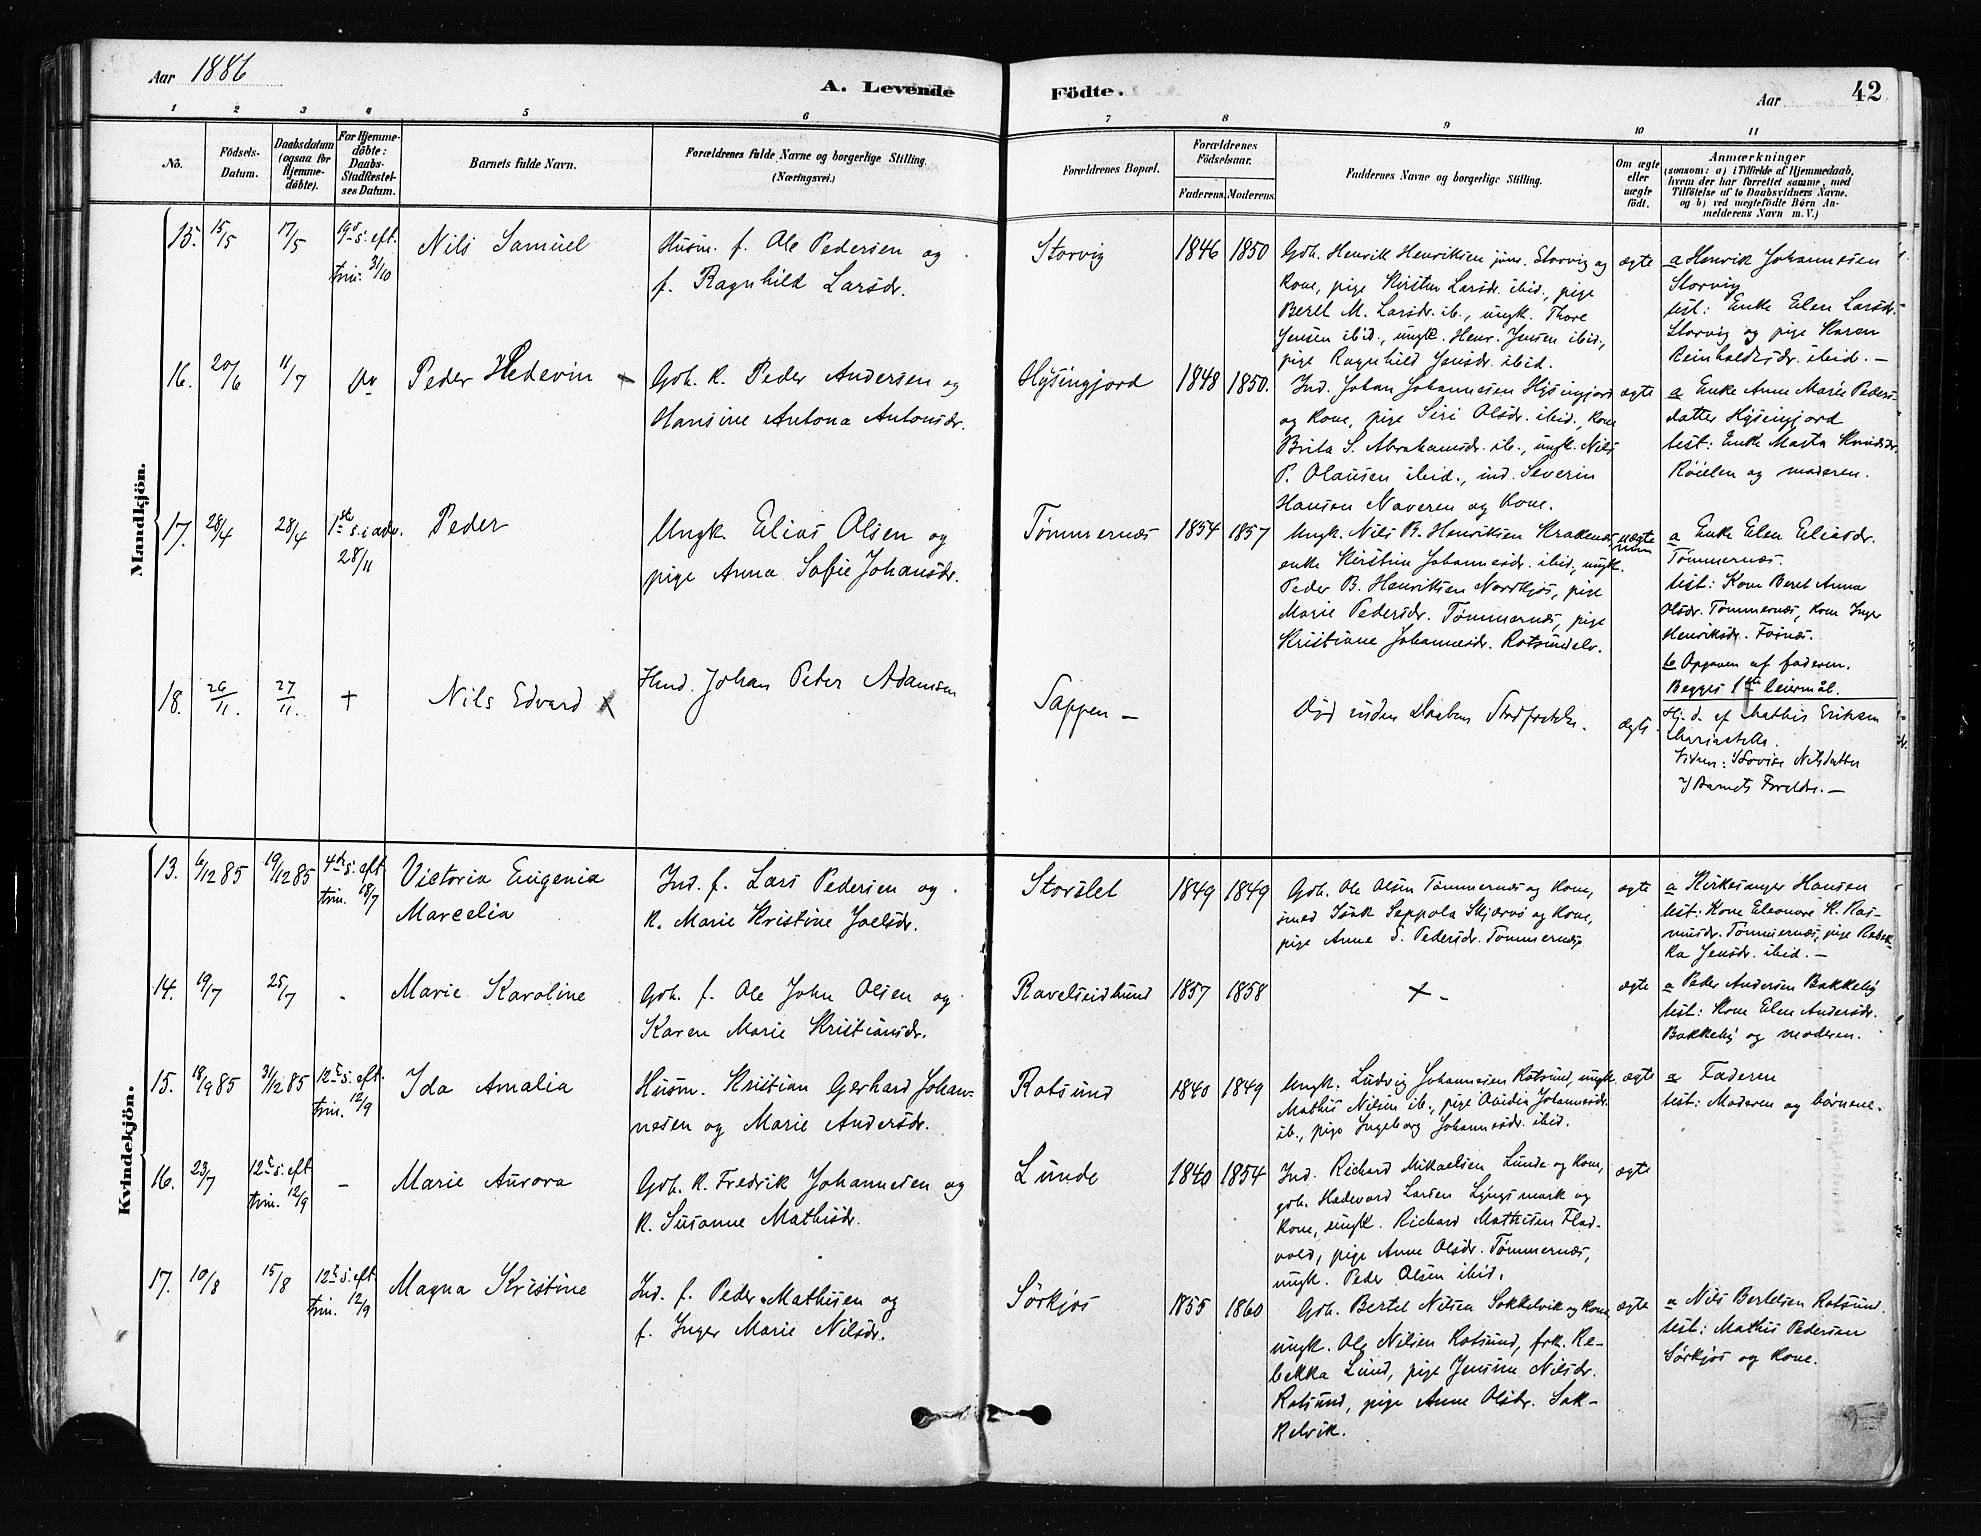 Aar 1886
A. Levende Födte.
Aar
42
1 2 3 4 5 6 7 8 9 10 11
No.
Födsels-
Datum.
Daabsdatum
(ogsaa for
Hjemme-
døbte).
For Hjemme-
døbte:
Daabs-
Stadfæstel-
ses Datum.
Barnets fulde Navn.
Forældrenes fulde Navne og borgerlige Stilling.
(Næringsvei.)
Forældrenes Bopæl.
Forældrenes
Födselsaar.
Faderens. Moderens.
Faddernes Navne og borgerlige Stilling.
Om ægte
eller
uægte
født.
Anmærkninger
(saasom: a) i Tilfælde af Hjemmedaab,
hvem der har forrettet samme, med
Tilföielse af to Daabsvidners Navne.
og b) ved uægtefödte Börn An-
melderens Navn m. V.)
Mandkjön.
15. 15/5 17/5 19de s. eft.
trin. 31/10
Nils Samuel
Husm. f. Ole Pedersen og
f. Ragnhild Larsdr.
Storvig 1846 1850
Gdb. Henrik Henriksen jun. Storvig og
kone, pige Kirsten Larsdr. ibid., pige
Beret M. Larsdr. ib., ungk. Thore
Jensen ibid., ungk. Henr. Jensen ibid.,
pige Ragnhild Jensdr. ibid.
ægte
a Henrik Johannesen
Storvig
test: Enke Elen Larsdr.
Storvig og pige Karen
Reinholdtsdr. ibid. –
16. 20/6 11/7 do
Peder Hedevin +
Gdb. k. Peder Andersen og
Hansine Antona Antonsdr.
Hysingjord 1848 1850.
Ind. Johan Johannesen Hysingjord
og kone, pige Siri Olsdr. ibid., kone
Brita S. Abrahamsdr. ib., ungk. Nils
P. Olausen ibid., ind. Severin
Hansen Naveren og kone.
ægte
a Enke Anne Marie Peders-
datter Hysingjord
test: Enke Marta Knudsdr.
Röielen og moderen.
17. 28/4 28/4 1ste s. i adv.
28/11
Peder
Ungk. Elias Olsen og
pige Anna Sofie Johansdr.
Tømmernæs 1854 1857
Ungk. Nils B. Henriksen Krakenæs
enke Kirstin Johannesdr. ibid., ungk.
Peder B. Henriksen Nordkjos, pige
Marie Pedersdr. Tømmernæs, pige
Kristiane Johannesdr. Rotsundelv.
uægte
a Enke Elen Eliasdr.
Tømmernæs.
test: Kone Beret Anna
Olsdr. Tømmernæs, kone Inger
Henriksdr. Fornæs.
b Opgaven af faderen.
Begges 1ste leiermål.
18. 26/11. 27/11. +
Nils Edvard x
Johan Peter Adamsen
Sappen –
Død inden Daabens Stadfæstelse.
ægte.
Hj. d. af Mathis Eriksen
Vidner: Lovise Nilsdatter
Barnets Foreldre. –
Kvindekjön.
13. 6/12 85 19/12 85 4de s. eft.
trin. 18/7
Victoria Eugenia
Marcelia
Ind. f. Lars Pedersen og
k. Marie Kristine Joelsdr.
Storslet 1849 1849
Gdb. Ole Olsen Tømmernæs og kone,
smed Isak Seppola Skjærvø og kone,
pige Anne S. Pedersdr. Tømmernæs
ægte
a Kirkesanger Hansen
test: Kone Eleonore K. Ras-
musdr. Tømmernæs, pige Rebek-
ka Jensdr. ibid. –
14. 19/7 25/7 -
Marie Karoline
Gdb. f. Ole John Olsen og
Karen Marie Kristiansdr.
Ravelseidsund 1857 1858
+ -
ægte
a Peder Andersen Bakkeby
test: Kone Elen Andersdr.
Bakkeby og moderen.
15. 18/9 85 31/12 85 12te s. eft.
trin. 12/9
Ida Amalia
Husm. Kristian Gerhard Johan-
nesen og Marie Andersdr.
Rotsund 1840 1849
Ungk. Ludvig Johannesen Rotsund, ungk.
Mathis Nilsen ib., pige Ovidia Johannesdr.
ib., pige Ingeborg Johannesdr. ibid.
ægte
a Faderen
test: Moderen og børnene.
16. 23/7 12te s. eft.
trin. 12/9 –
Marie Aurora
Gdb. k. Fredrik Johannesen og
k. Susanne Mathisdr.
Lunde 1840 1854
Ind. Richard Mikaelsen Lunde og kone,
gdb. Hadevard Larsen Lyngsmark og
kone, ungk. Richard Mathisen Flad-
vold, pige Anne Olsdr. Tømmernæs,
ungk. Peder Olsen ibid.
ægte
17. 10/8 15/8 12te s. eft.
trin. 12/9
Magna Kristine
Ind. f. Peder Mathisen og
f. Inger Marie Nilsdr.
Sørkjos 1855 1860
Gdb. Bertel Nilsen Sokkelvik og kone,
ungk. Ole Nilsen Rotsund, frk. Re-
bekka Lund, pige Jensine Nilsdr.
Rotsund, pige Anne Olsdr. Sok-
kelvik.
ægte
a Nils Bertelsen Rotsund.
test: Mathis Pedersen
Sørkjos og kone.